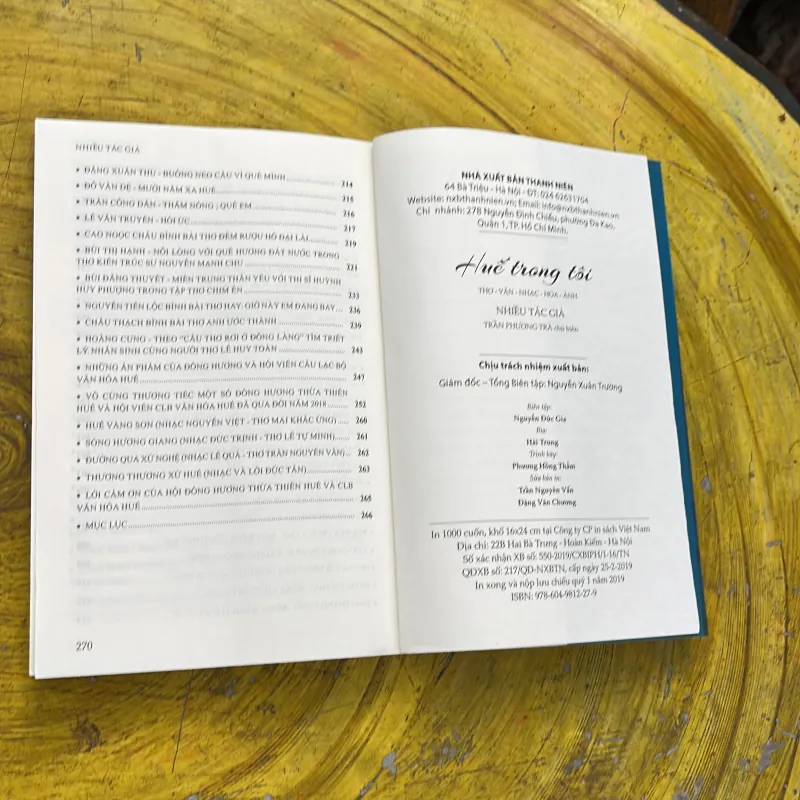 NHIỀU TÁC GIẢ
• ĐẶNG XUÂN THU - BUÔNG NEO CẬU VÌ QUÊ MÌNH 214
• ĐỖ VĂN ĐỆ - MƯỜI NĂM XA HUẾ 215
• TRẦN CÔNG DÂN - THẤM NÓNG ; QUÊ EM 216
• LÊ VĂN TRUYỀN - HỒI ỨC 217
• CAO NGỌC CHÂU BÌNH BÀI THƠ ĐÊM RƯỢU HỒ ĐẠI LẢI 219
• BÙI THỊ HẠNH - NỖI LÒNG VỚI QUÊ HƯƠNG ĐẤT NƯỚC TRONG
THƠ KIẾN TRÚC SƯ NGUYỄN MẠNH CHU 221
• BÙI ĐĂNG THUYẾT - MIỀN TRUNG THÂN YÊU VỚI THI SĨ HUỲNH
HUY PHƯỢNG TRONG TẬP THƠ CHIM ÉN 233
• NGUYỄN TIẾN LỘC BÌNH BÀI THƠ HAY: GIÓ NÀY EM ĐANG BAY 236
• CHÂU THẠCH BÌNH BÀI THƠ ANH ƯỚC THÀNH 239
• HOÀNG CUNG - THEO "CÂU THƠ RƠI Ở ĐỒNG LÀNG" TÌM TRIẾT
LÝ NHÂN SINH CÙNG NGƯỜI THƠ LÊ HUY TOÀN 243
• NHỮNG ẤN PHẨM CỦA ĐỒNG HƯƠNG VÀ HỘI VIÊN CÂU LẠC BỘ
VĂN HÓA HUẾ 247
• VÔ CÙNG THƯƠNG TIẾC MỘT SỐ ĐỒNG HƯƠNG THỪA THIÊN
HUẾ VÀ HỘI VIÊN CLB VĂN HÓA HUẾ ĐÃ QUA ĐỜI NĂM 2018 252
• HUẾ VÀNG SON (NHẠC NGUYÊN VIỆT - THƠ MAI KHẮC ỨNG) 260
• SÔNG HƯƠNG GIANG (NHẠC ĐỨC TRỊNH - THƠ LÊ TỰ MINH) 261
• ĐƯỜNG QUA XỨ NGHỆ (NHẠC LÊ QUẢ - THƠ TRẦN NGUYÊN VẤN) 262
• THƯƠNG THƯƠNG XỨ HUẾ (NHẠC VÀ LỜI ĐỨC TẤN) 263
• LỜI CẢM ƠN CỦA HỘI ĐỒNG HƯƠNG THỪA THIÊN HUẾ VÀ CLB
VĂN HÓA HUẾ 265
• MỤC LỤC 266
270
NHÀ XUẤT BẢN THANH NIÊN
64 Bà Triệu - Hà Nội - ĐT: 024 62631704
Website: nxbthanhnien.vn; Email: info@nxbthanhnien.vn
Chi nhánh: 27B Nguyễn Đình Chiểu, phường Đa Kao,
Quận 1, TP. Hồ Chí Minh.
Huế trong tôi
THƠ - VĂN - NHẠC - HỌA - ẢNH
NHIỀU TÁC GIẢ
TRẦN PHƯƠNG TRÀ chủ biên
Chịu trách nhiệm xuất bản:
Giám đốc – Tổng Biên tập: Nguyễn Xuân Trường
Biên tập:
Nguyễn Đức Gia
Bìa:
Hải Trung
Trình bày:
Phương Hồng Thắm
Sửa bản in:
Trần Nguyên Vấn
Đặng Văn Chương
In 1000 cuốn, khổ 16x24 cm tại Công ty CP in sách Việt Nam
Địa chỉ: 22B Hai Bà Trưng - Hoàn Kiếm - Hà Nội
Số xác nhận XB số: 550-2019/CXBIPH/1-16/TN
QĐXB số: 217/QĐ-NXBTN, cấp ngày 25-2-2019
In xong và nộp lưu chiểu quý 1 năm 2019
ISBN: 978-604-9812-27-9